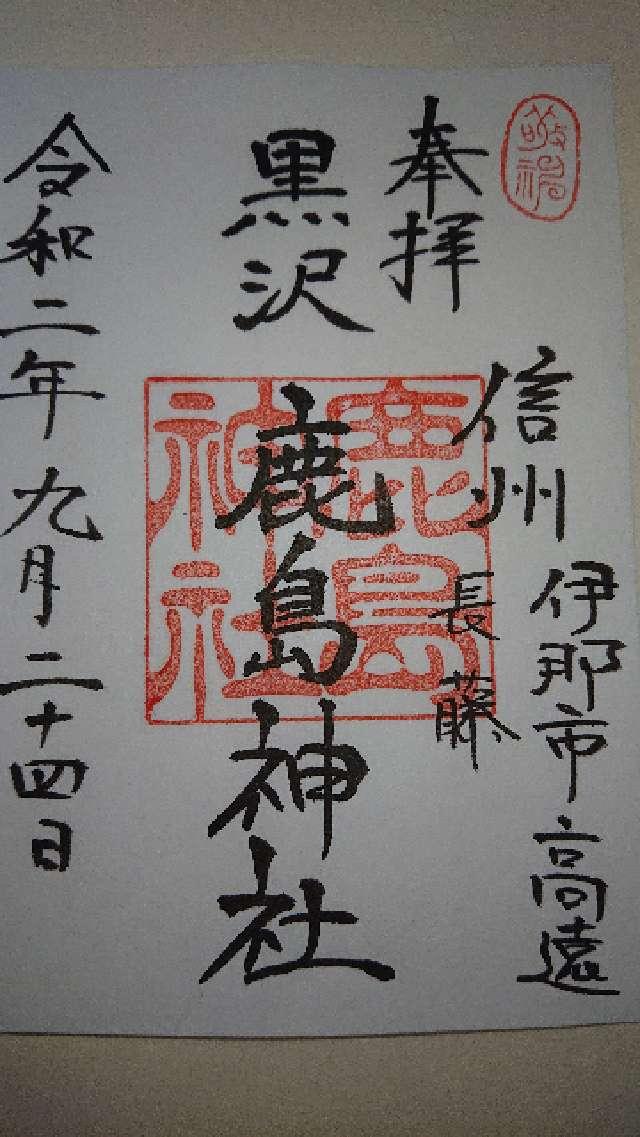 敬神
奉拝
信州
伊那市高遠
長藤
黒沢
鹿島神社
鹿島
神社
令和二年九月二十四日